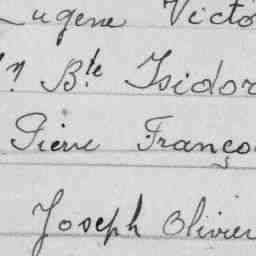 Eugene Victo
n Bte Isidor
Pierre Franço
Joseph Olivier